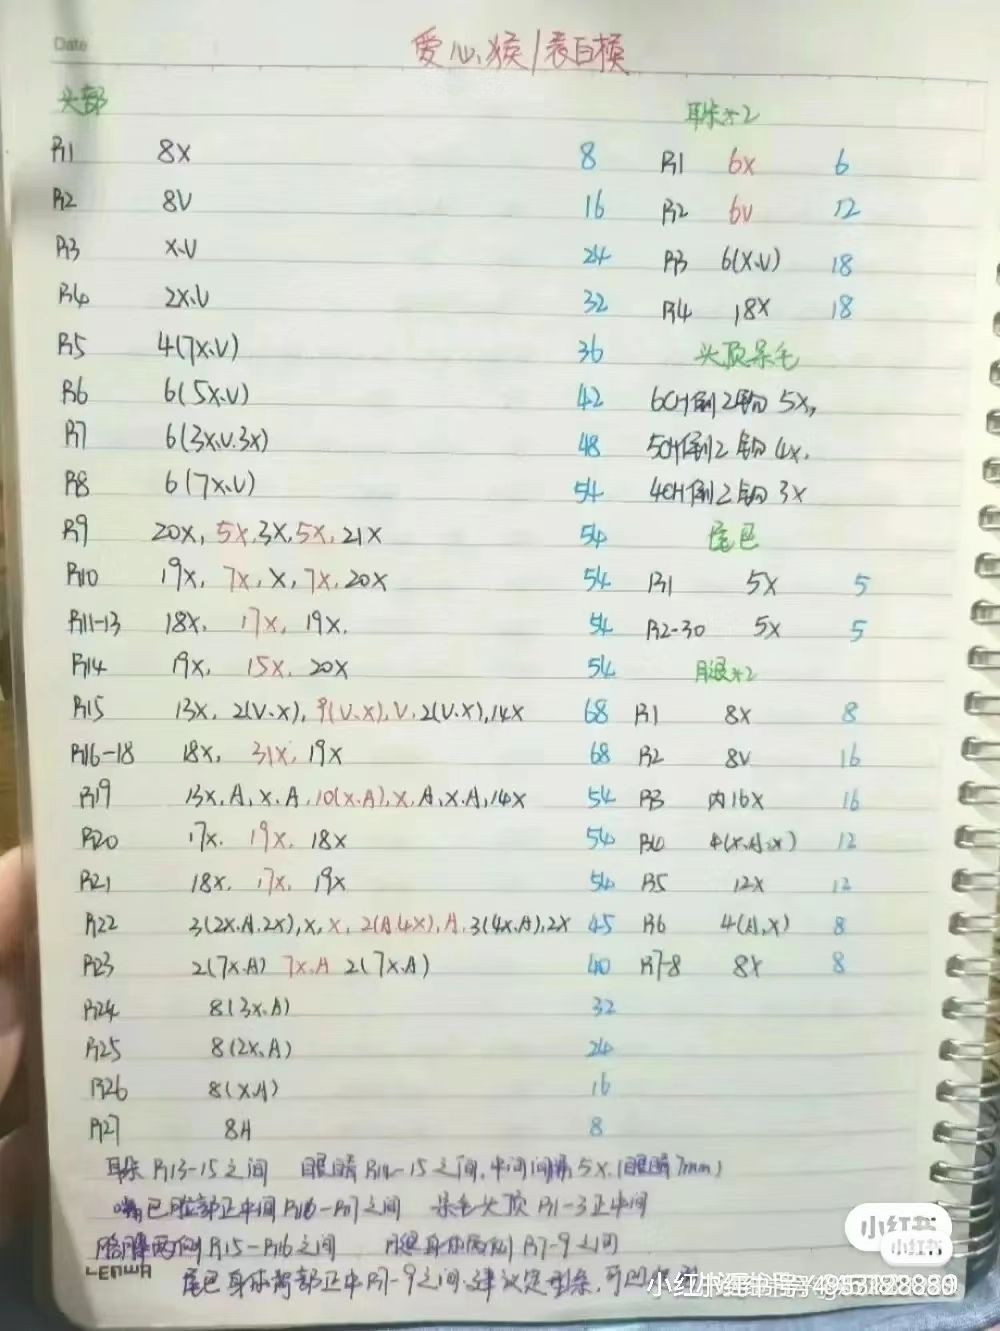 Date
爱心猴/表白模
头部
R1 8X 8
R2 8V 16
R3 X.V 24
R4 2X.V 32
R5 4(7X.V) 36
R6 6(5X.V) 42
R7 6(3X.V.3X) 48
R8 6(7X.V) 54
R9 20X, 5X, 3X, 5X, 21X 54
R10 19X, 7X, X, 7X, 20X 54
R11-13 18X. 17X, 19X. 54
R14 19X, 15X, 20X 54
R15 13X, 2(V.X), 9(V.X), V, 2(V.X), 14X 68
R16-18 18X, 31X, 19X 68
R19 13X, A, X, A, 10(X.A), X, A, X.A, 14X 54
R20 17X. 19X. 18X 54
R21 18X. 17X. 19X 54
R22 3(2X.A.2X), X, X, 2(A.4X), A, 3(4X.A), 2X 45
R23 2(7X.A) 7X.A 2(7X.A) 40
R24 8(3X.A) 32
R25 8(2X.A) 24
R26 8(X.A) 16
R27 8A 8
耳朵*2
R1 6X 6
R2 6V 12
R3 6(X.V) 18
R4 18X 18
头顶呆毛
6CH倒2钩5X,
5CH倒2钩4X.
4CH倒2钩3X
尾巴
R1 5X 5
R2-30 5X 5
腿*2
R1 8X 8
R2 8V 16
R3 内16X 16
R4 4(X.A.X) 12
R5 12X 12
R6 4(A,X) 8
R7-8 8X 8
耳朵R13-15之间 眼睛R14-15之间,中间间隔5X.(眼睛7mm)
嘴巴脸部正中间R16-R17之间 呆毛头顶R1-3正中间
胳膊两侧R15-R16之间 腿身体两侧R7-9之间
LENWA
尾巴身体背部正中R7-9之间.建议定型条,可凹
小红书
小红书
小红书号:4953828880